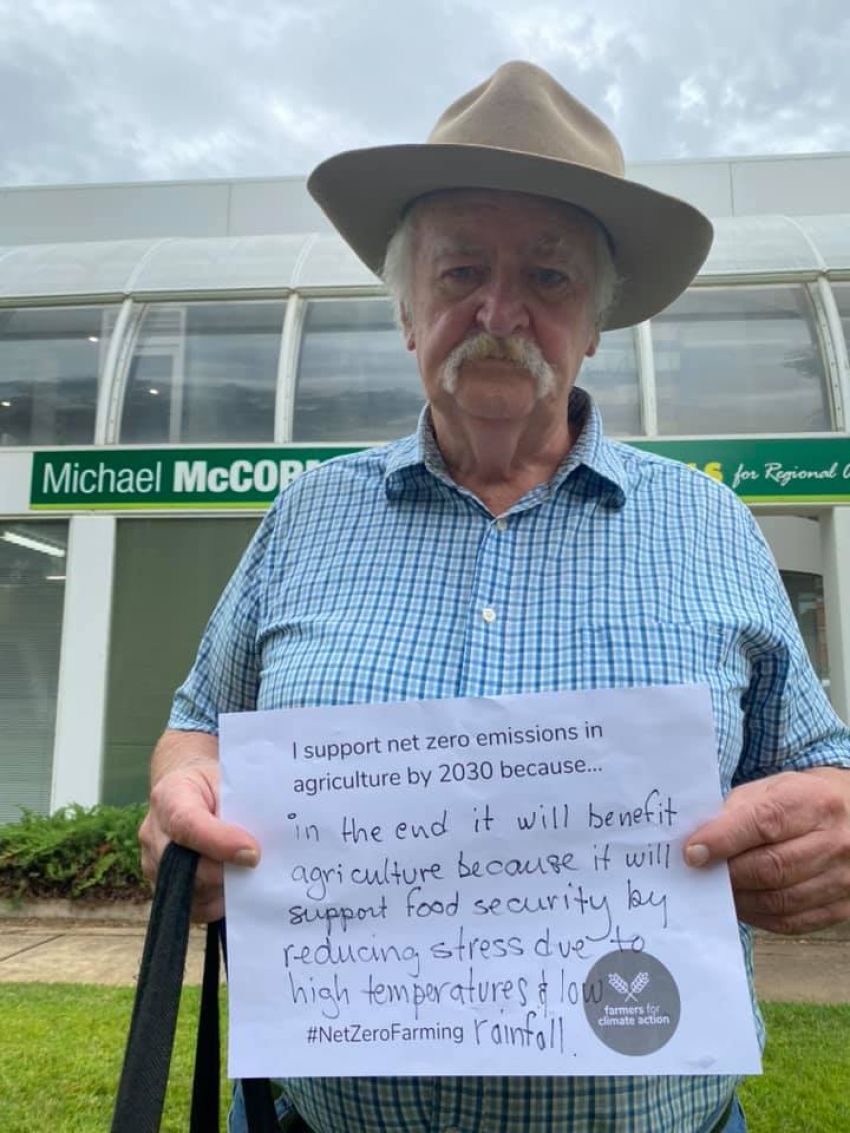 Michael McCOR
S for Regional
I support net zero emissions in
agriculture by 2030 because...
in the end it will benefit
agriculture because it will
support food security by
reducing stress due to
high temperatures & low
rainfall.
farmers for
climate action
#NetZeroFarming